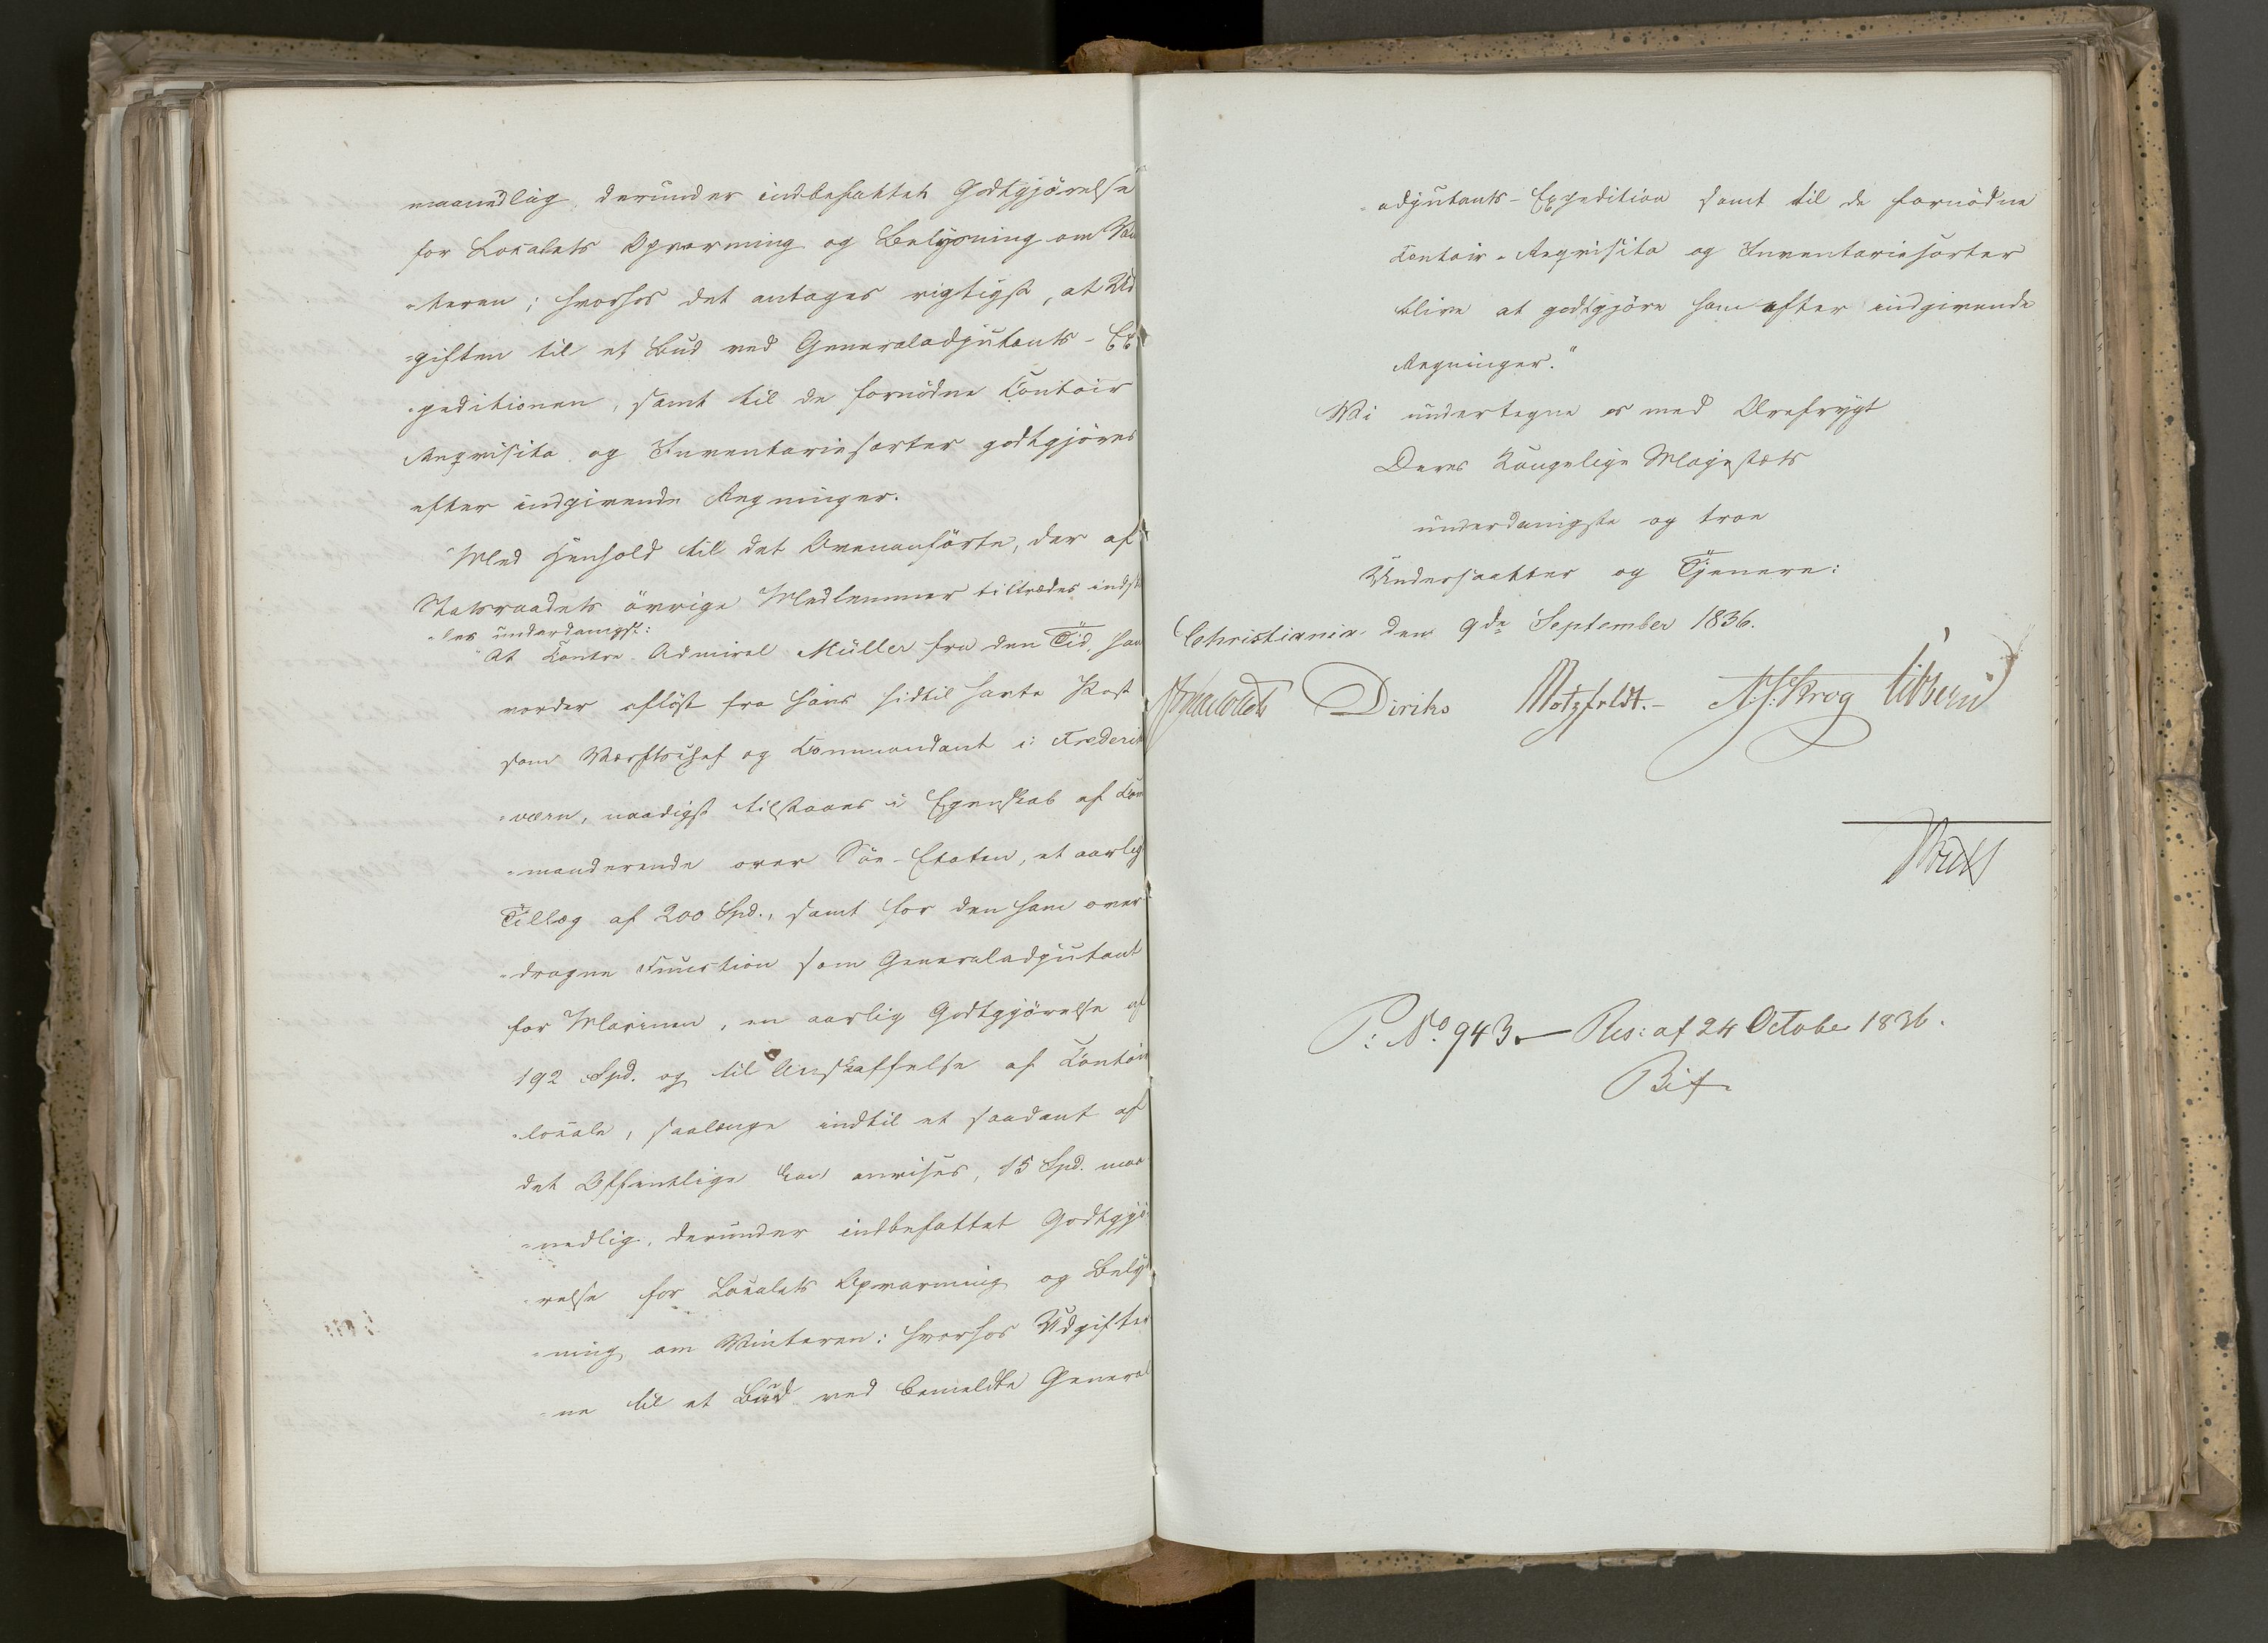 maanedlig, derunder indbefattet Godtgjörelse
for Locales Opvarming og Belysning om Vin
-teren; hvorhos det antages rigtigst, at Ud
-giften til et Bud ved Generaladjutants-Ex
-peditionen, samt til de fornödne Contoir
Reqvisita og Inventariesorter godtgjöres
efter indgivende Regninger.
Med Henhold til det Ovenanförte, der af
Statsraadets övrige Medlemmer tiltrædes indstil
-les underdanigst:
"At Contre-Admiral Müller fra den Tid, han
vorder aflöst fra hans hidtil havte Post
som Værftschef og Commandant i Frederiks
-værn, naadigst tilstaaes i Egenskab af Com
-manderende over Söe-Etaten, et aarligt
Tillæg af 200 Spd., samt for den ham over
-dragne Function som Generaladjutant
for Marinen, en aarlig Godtgjörelse af
192 Spd. og til Anskaffelse af Contoir
-locale, saalænge indtil et saadant af
det Offentlige kan anvises, 15 Spd. maa
-nedlig, derunder indbefattet Godtgjö
-relse for Localets Opvarming og Belys
-ning om Vinteren; hvorhos Udgifter
-ne til et Bud ved bemeldte General
-adjutants-Expedition samt til de fornödne
Contoir-Reqvisita og Inventariesorter
blive at godtgjöre ham efter indgivende
Regninger."
Vi undertegne os med Ærefrygt
Deres Kongelige Majestæts
underdanigste og troe
Undersaatter og Tjenere:
Christiania den 9de September 1836.
Diriks Motzfeldt.- Krog
P: No. 943.- Res: af 24 October 1836.